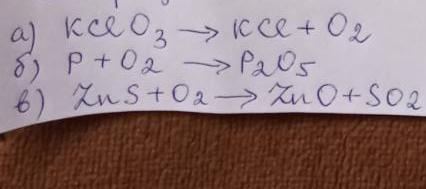 а) KClO₃ → KCl + O₂
б) P + O₂ → P₂O₅
в) ZnS + O₂ → ZnO + SO₂